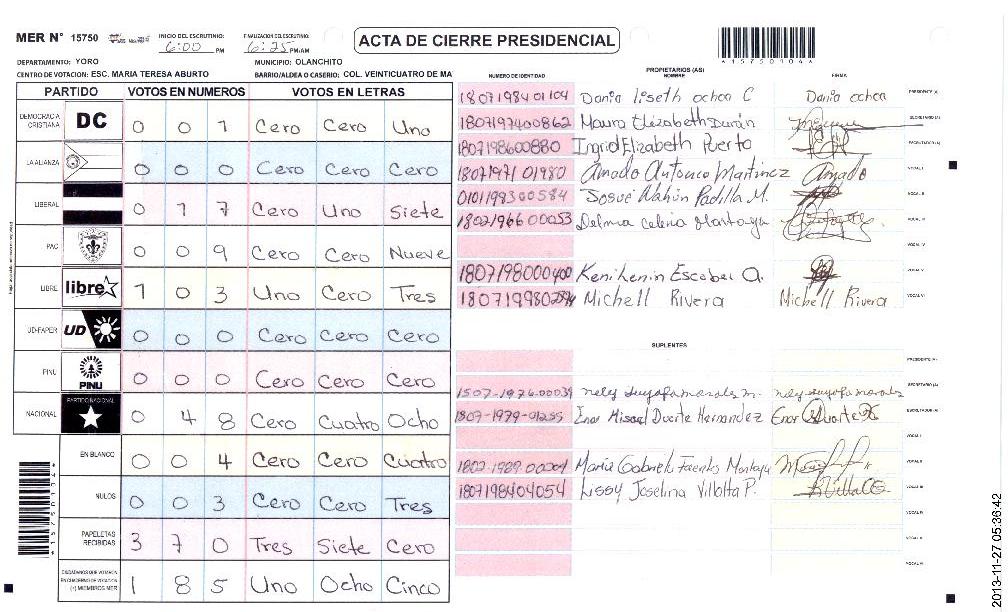 MER N° 15750 INICIO DEL ESCRUTINIO: 6:00 PM FINALIZACION DEL ESCRUTINIO: 6:25 PM/AM
ACTA DE CIERRE PRESIDENCIAL
*157501044*
DEPARTAMENTO: YORO MUNICIPIO: OLANCHITO
CENTRO DE VOTACION: ESC. MARIA TERESA ABURTO BARRIO/ALDEA O CASERIO: COL. VEINTICUATRO DE MA
PARTIDO VOTOS EN NUMEROS VOTOS EN LETRAS
DEMOCRACIA CRISTIANA DC 0 0 1 Cero Cero Uno
LA ALIANZA 0 0 0 Cero Cero Cero
LIBERAL 0 1 7 Cero Uno Siete
PAC 0 0 9 Cero Cero Nueve
LIBRE libre 1 0 3 Uno Cero Tres
UD-FAPER UD 0 0 0 Cero Cero Cero
PINU PINU 0 0 0 Cero Cero Cero
NACIONAL PARTIDO NACIONAL 0 4 8 Cero Cuatro Ocho
EN BLANCO 0 0 4 Cero Cero Cuatro
NULOS 0 0 3 Cero Cero Tres
PAPELETAS RECIBIDAS 3 7 0 Tres Siete Cero
CIUDADANOS QUE VOTARON EN CUADERNO DE VOTACION (+) MIEMBROS MER 1 8 5 Uno Ocho Cinco
PROPIETARIOS (AS)
NUMERO DE IDENTIDAD NOMBRE FIRMA
1807198401104 Dania liseth ochoa C Dania ochoa PRESIDENTE (A)
1807197400862 Maura Elizabeth Durán SECRETARIO (A)
1807198600880 Ingrid Elizabeth Puerto ESCRUTADOR (A)
1807197101980 Amado Antonio Martinez Amado VOCAL I
0101198300584 Josué Nahún Padilla M. VOCAL II
1802196600053 Delmia celenia Montoya VOCAL III
VOCAL IV
1807198000400 Keni Lenin Escobar A. VOCAL V
Michell Rivera Michell Rivera VOCAL VI
SUPLENTES
PRESIDENTE (A)
1507-1976-00039 nely suyapa morales m. nely suyapa morales SECRETARIO (A)
1807-1979-01255 Enor Misael Duarte Hernandez Enor Duarte ESCRUTADOR (A)
VOCAL I
1802-1989-00204 Maria Gabriela Fuentes Montoya VOCAL II
1807198404054 Lissy Joselina Villalta P. VOCAL III
VOCAL IV
VOCAL V
VOCAL VI
2013-11-27 05:36:42